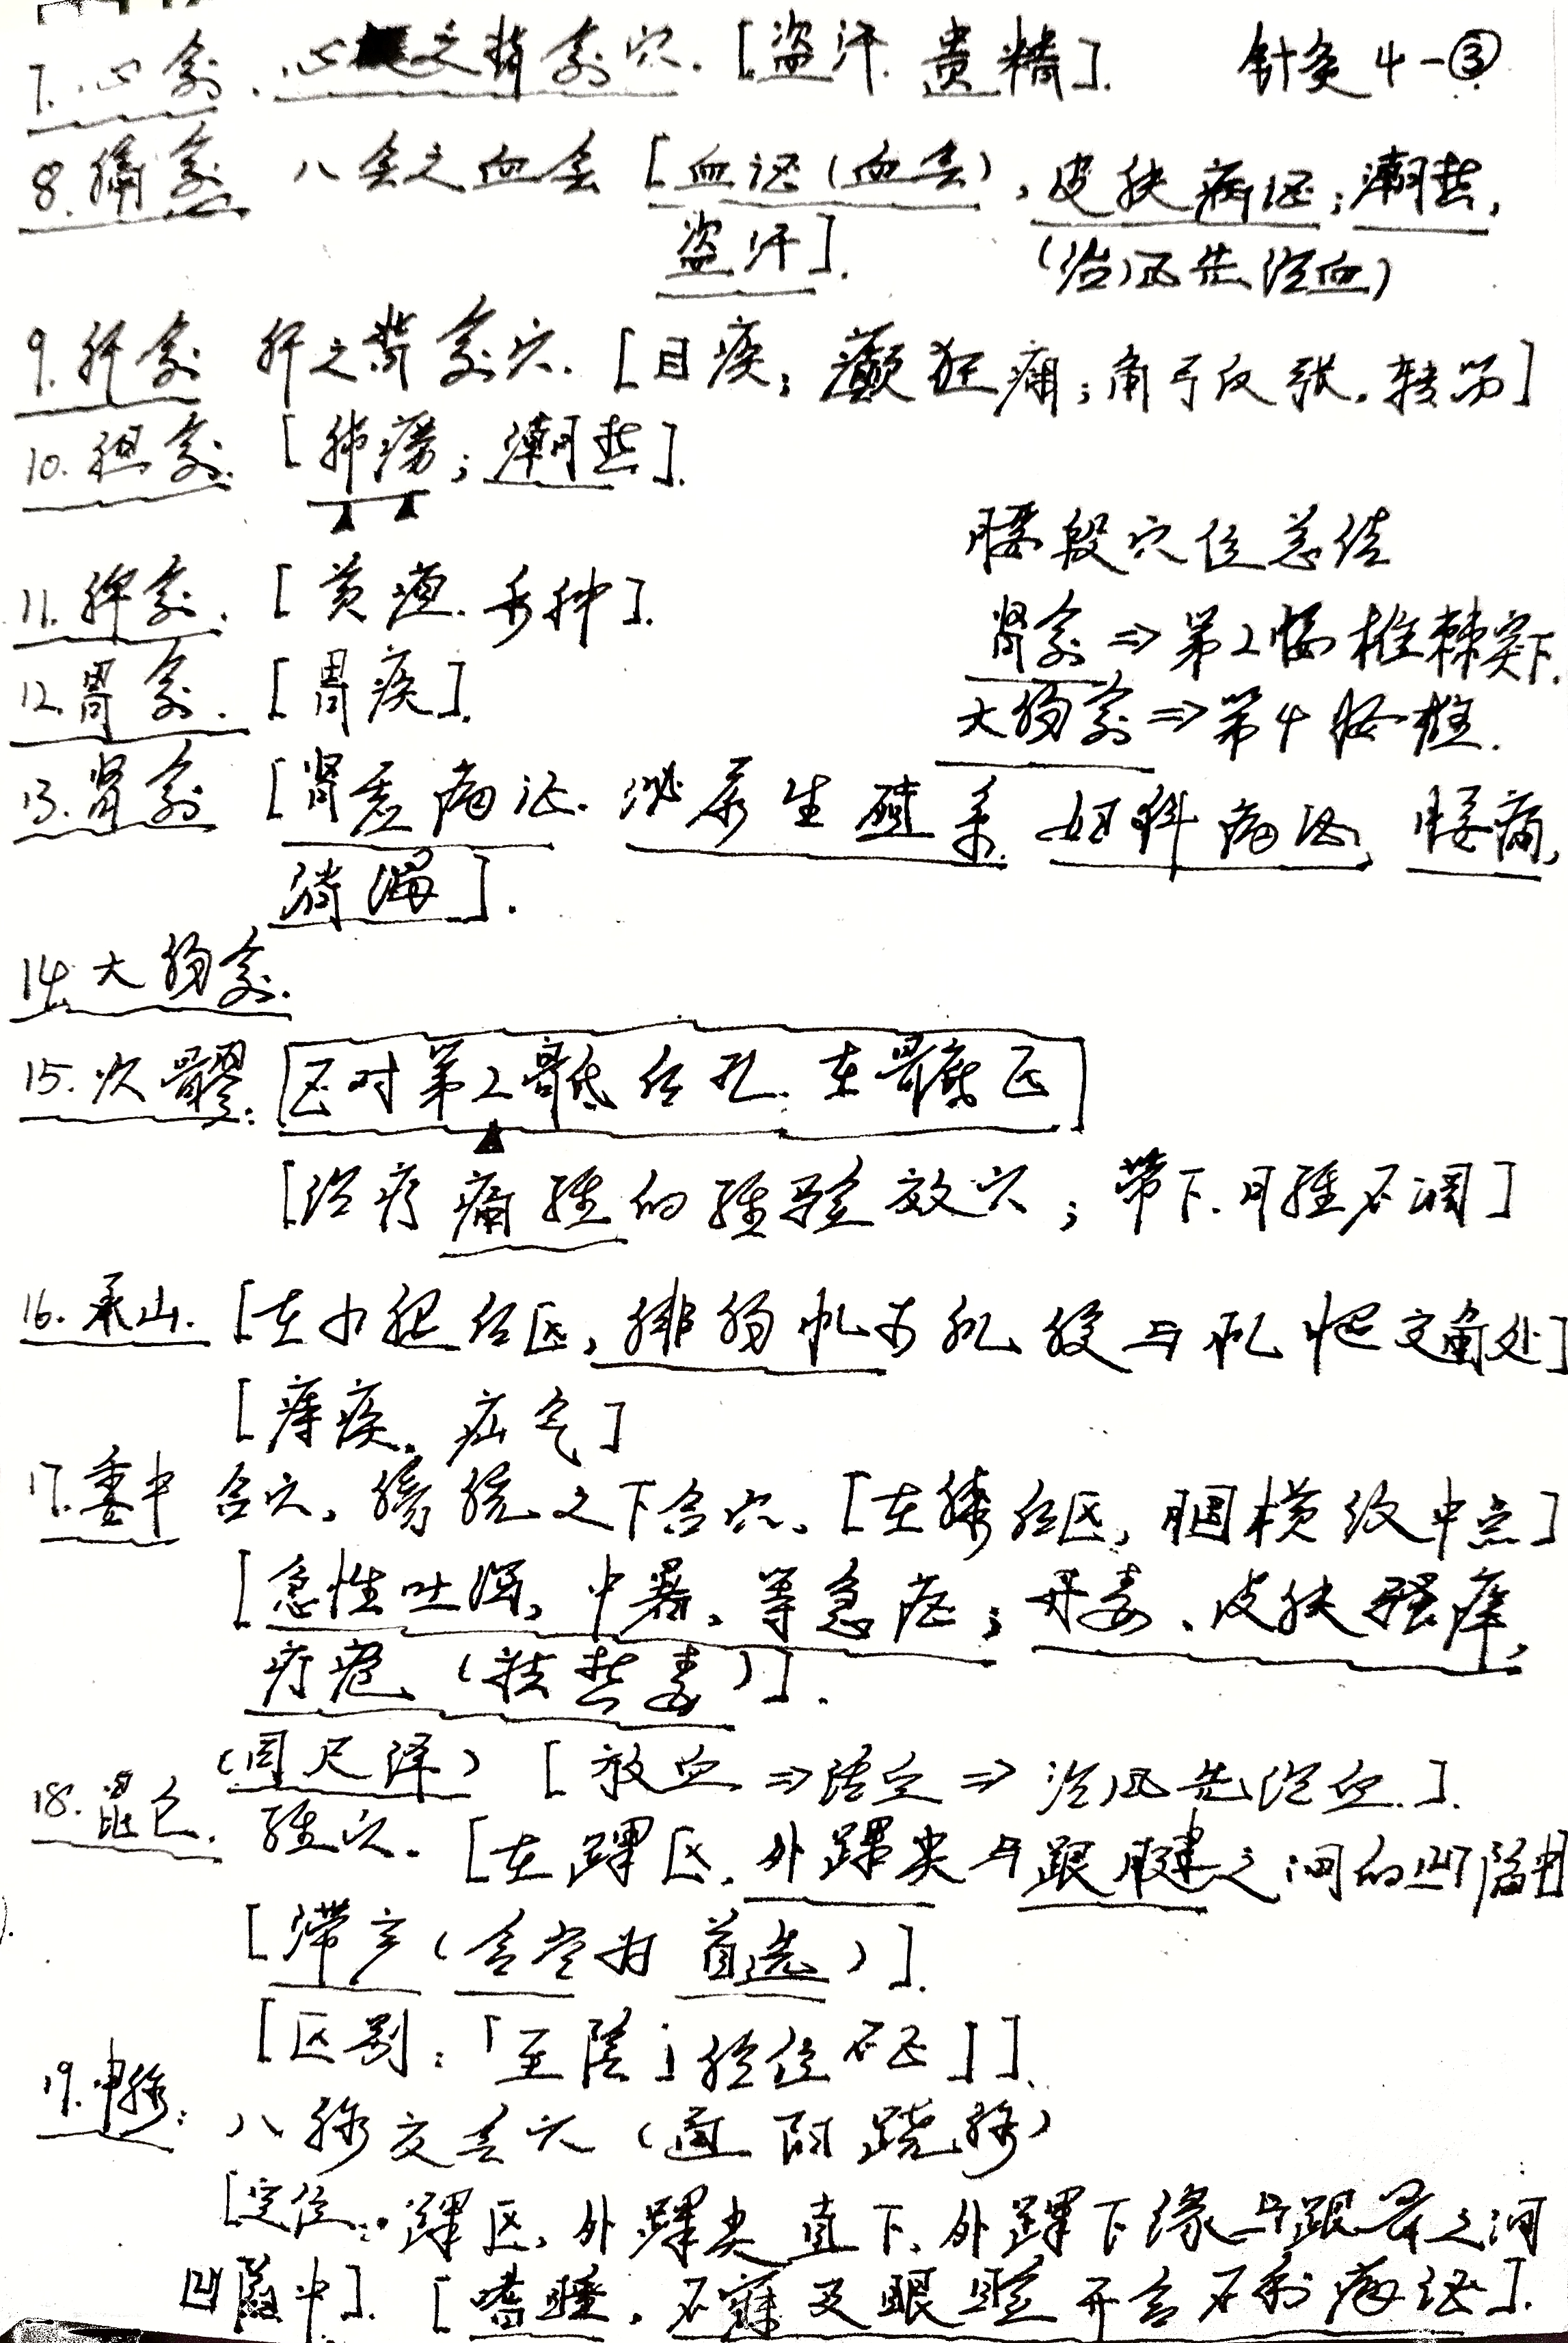 针灸4-③
7.心俞. 心之背俞穴. [盗汗. 遗精].
8.膈俞 八会之血会 [血证(血会), 皮肤病证; 潮热,
盗汗]. (治风先治血)
9.肝俞 肝之背俞穴. [目疾; 癫狂痫; 角弓反张, 转筋]
10.胆俞. [肺痨; 潮热].
腰段穴位总结
11.脾俞. [黄疸. 水肿].
肾俞⇒第2腰椎棘突下.
12.胃俞. [胃疾].
大肠俞⇒第4腰椎.
13.肾俞 [肾虚病证. 泌尿生殖系. 妇科病证, 腰痛,
消渴].
14.大肠俞.
15.次髎: [正对第2骶后孔. 在骶区]
[治疗痛经的经验效穴; 带下. 月经不调]
16.承山. [在小腿后区, 腓肠肌与肌腱交角处]
[痔疾, 疝气]
17.委中 合穴, 膀胱之下合穴, [在膝后区, 腘横纹中点]
[急性吐泻, 中暑, 等急症; 丹毒、皮肤瘙痒,
疔疮 (热毒)].
(同尺泽) [放血⇒⇒治风先治血.].
18.昆仑. 经穴. [在踝区, 外踝尖与跟腱之间的凹陷中]
[滞产(首选)].
[区别:「至阴」胎位不正]].
19.申脉: 八脉交会穴 (通阳跷脉)
[定位: 踝区, 外踝尖直下, 外踝下缘与跟骨之间
凹陷中]. [嗜睡, 不寐及眼睑开合不利病证].